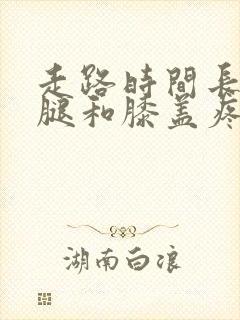 走路時間長
腿和膝盖疼
湖南白浪